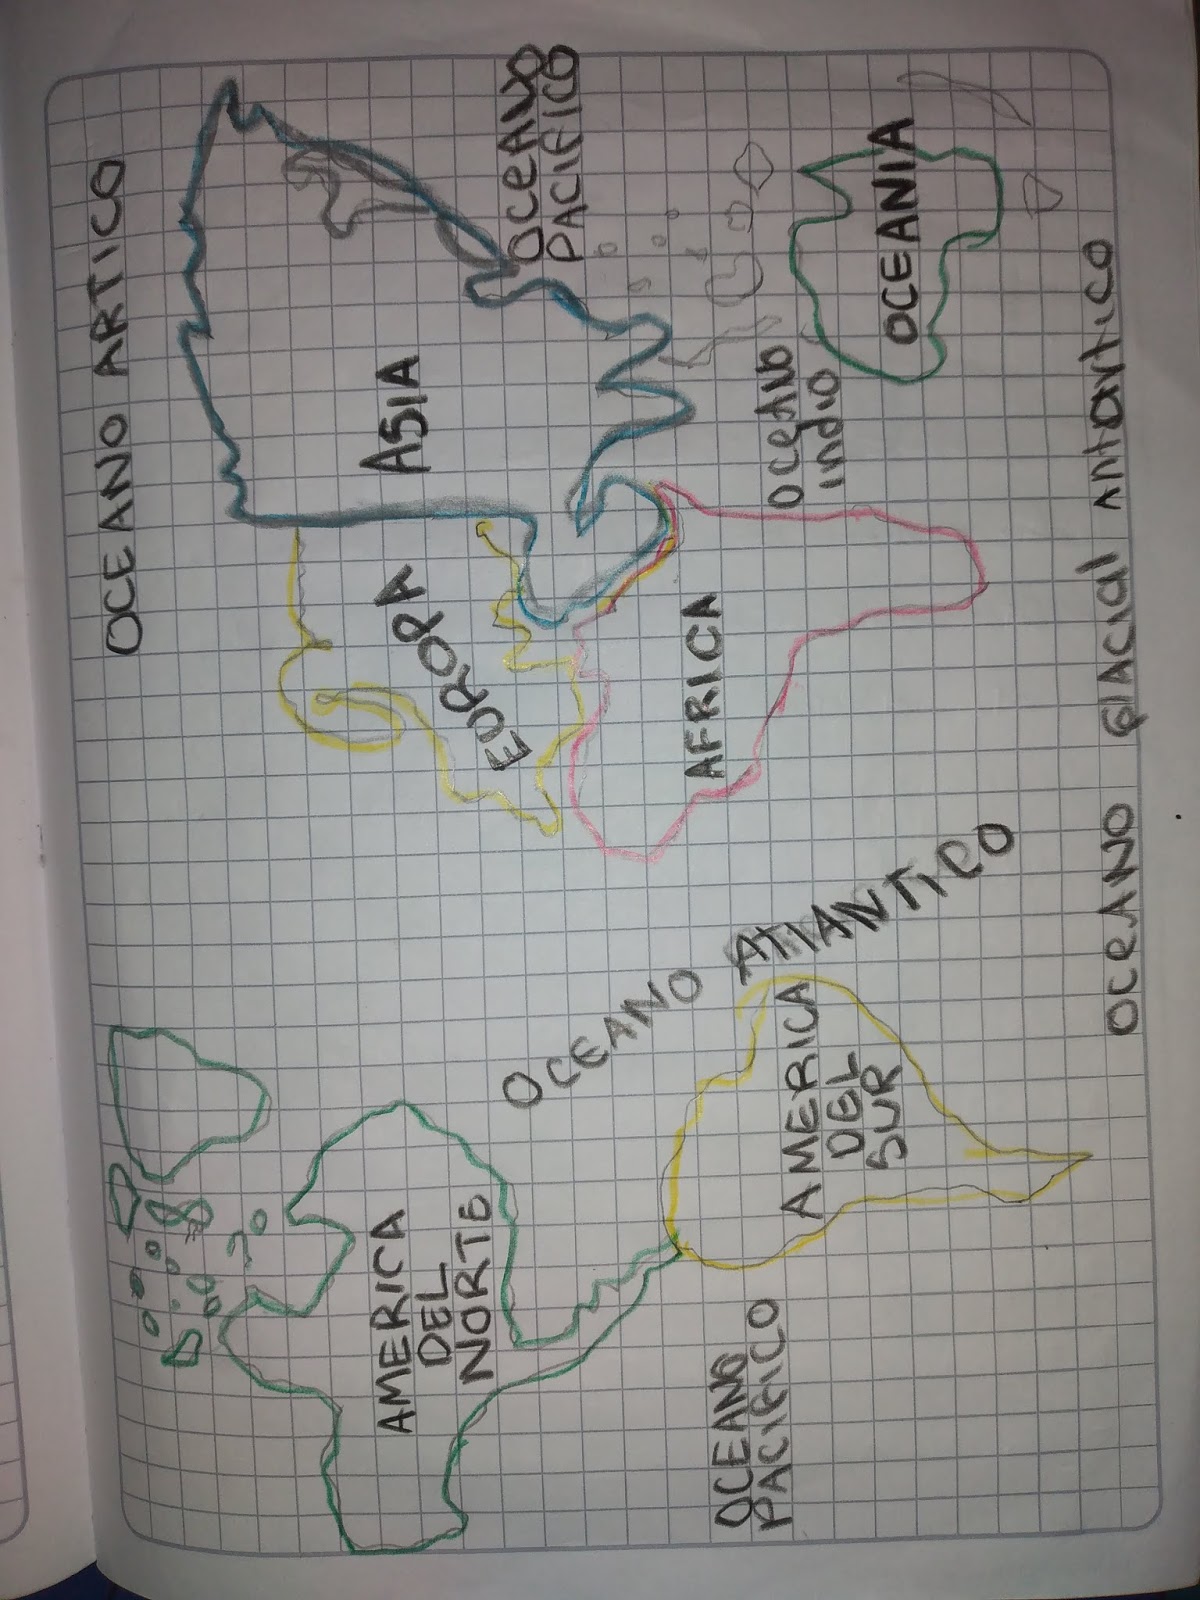 OCEANO ARTICO
AMERICA
DEL
NORTE
EUROPA
ASIA
OCEANO
PACIFICO
OCEANO ATlANTICO
AFRICA
OCEANO
PACIFICO
AMERICA
DEL
SUR
OCEANO
indio
OCEANIA
OCEANO GlACIAl AntArtICO